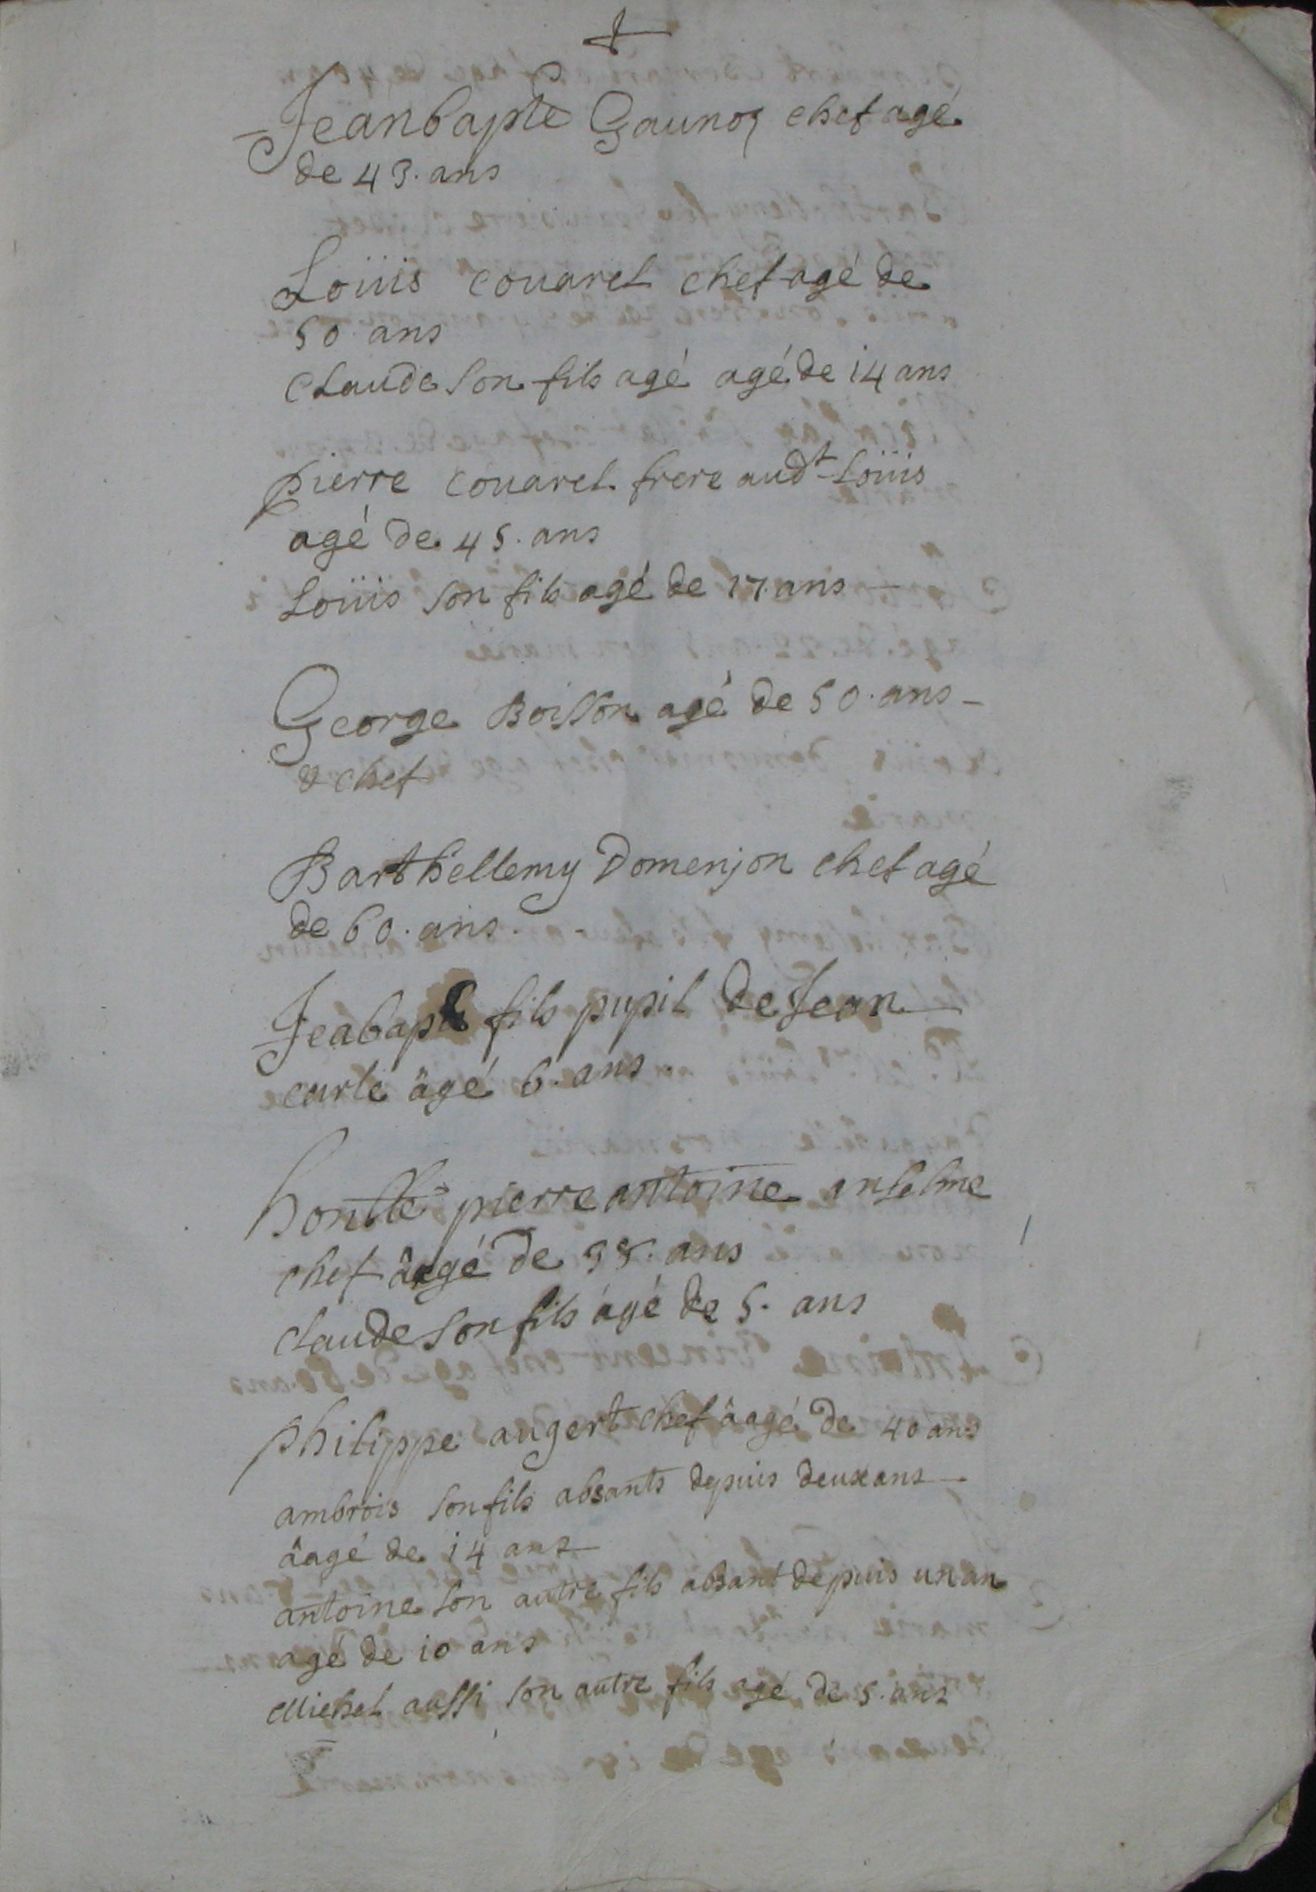 Jeanbapte Gaunoz chef agé
de 43. ans
Loüis couaret chef agé de
50 ans
Claude son fils agé agé de 14 ans
pierre couaret frere audt Loüis
agé de 45. ans
Loüis son fils agé de 17. ans
George Boisson agé de 50. ans
& chef
Barthellemy Domenjon chef agé
de 60. ans.
Jeabapt fils pupil de Jean
curte âgé 6. ans
honble pierre antoine anselme
chef âagé de 38. ans
claude son fils âgé de 5. ans
philippe angert chef âagé de 40 ans
ambrois son fils absants depuis deux ans
âagé de 14 ans
antoine son autre fils absant depuis un an
agé de 10 ans
Michel aussi son autre fils agé de 5. ans